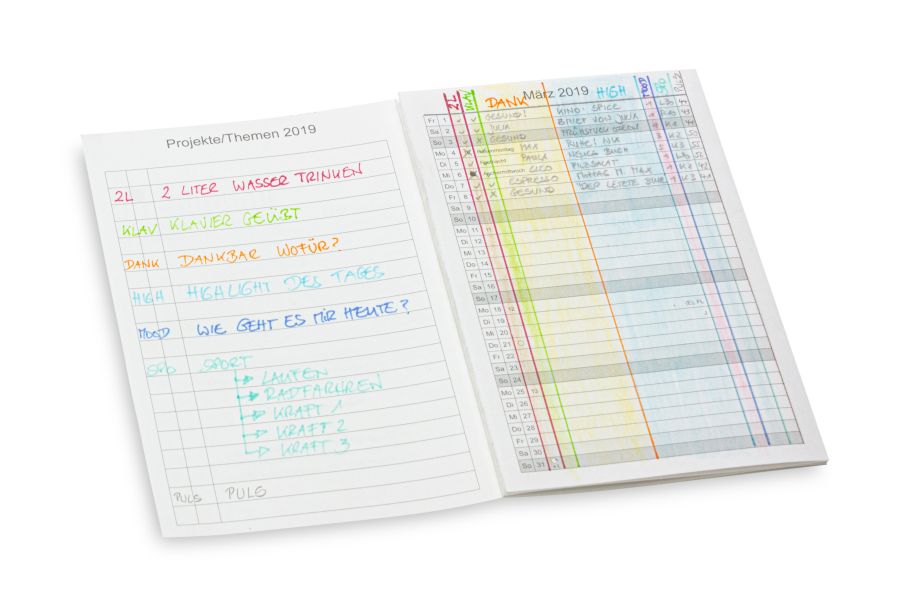 Projekte/Themen 2019
2L 2 LITER WASSER TRINKEN
KLAV KLAVIER GEÜBT
DANK DANKBAR WOFÜR?
HIGH HIGHLIGHT DES TAGES
MOOD WIE GEHT ES MIR HEUTE?
SPO SPORT
LAUFEN
RADFAHREN
KRAFT 1
KRAFT 2
KRAFT 3
PULS PULS
März 2019
2L KLAV DANK HIGH MOOD SPO PULS
Fr 1 GESUND! KINO: SPICE
Sa 2 JULIA BRIEF VON JULIA
So 3 GESUND
Mo 4 Rosenmontag MAX RUHE! NIX
Di 5 Fastnacht PAULA NEUES BUCH
Mi 6 Aschermittwoch COCO
Do 7 ESPRESSO MITTAG M. MAX
Fr 8 GESUND "DER LETZTE
Sa 9
So 10
Mo 11
Di 12
Mi 13
Do 14
Fr 15
Sa 16
So 17
Mo 18 12
Di 19
Mi 20
Do 21
Fr 22
Sa 23
So 24
Mo 25 13
Di 26
Mi 27
Do 28
Fr 29
Sa 30
So 31